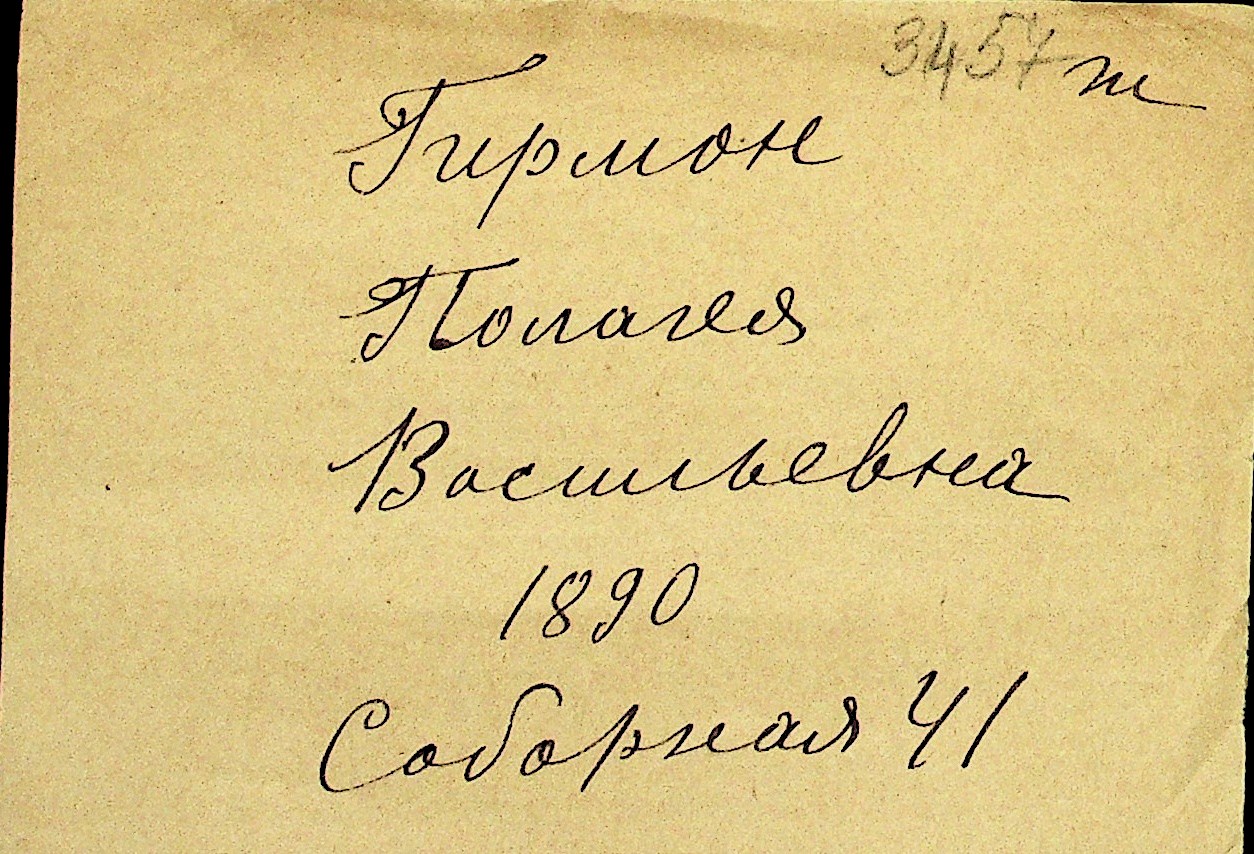 3457 т
Гирмон
Полагея
Васильевна
1890
Соборная 41